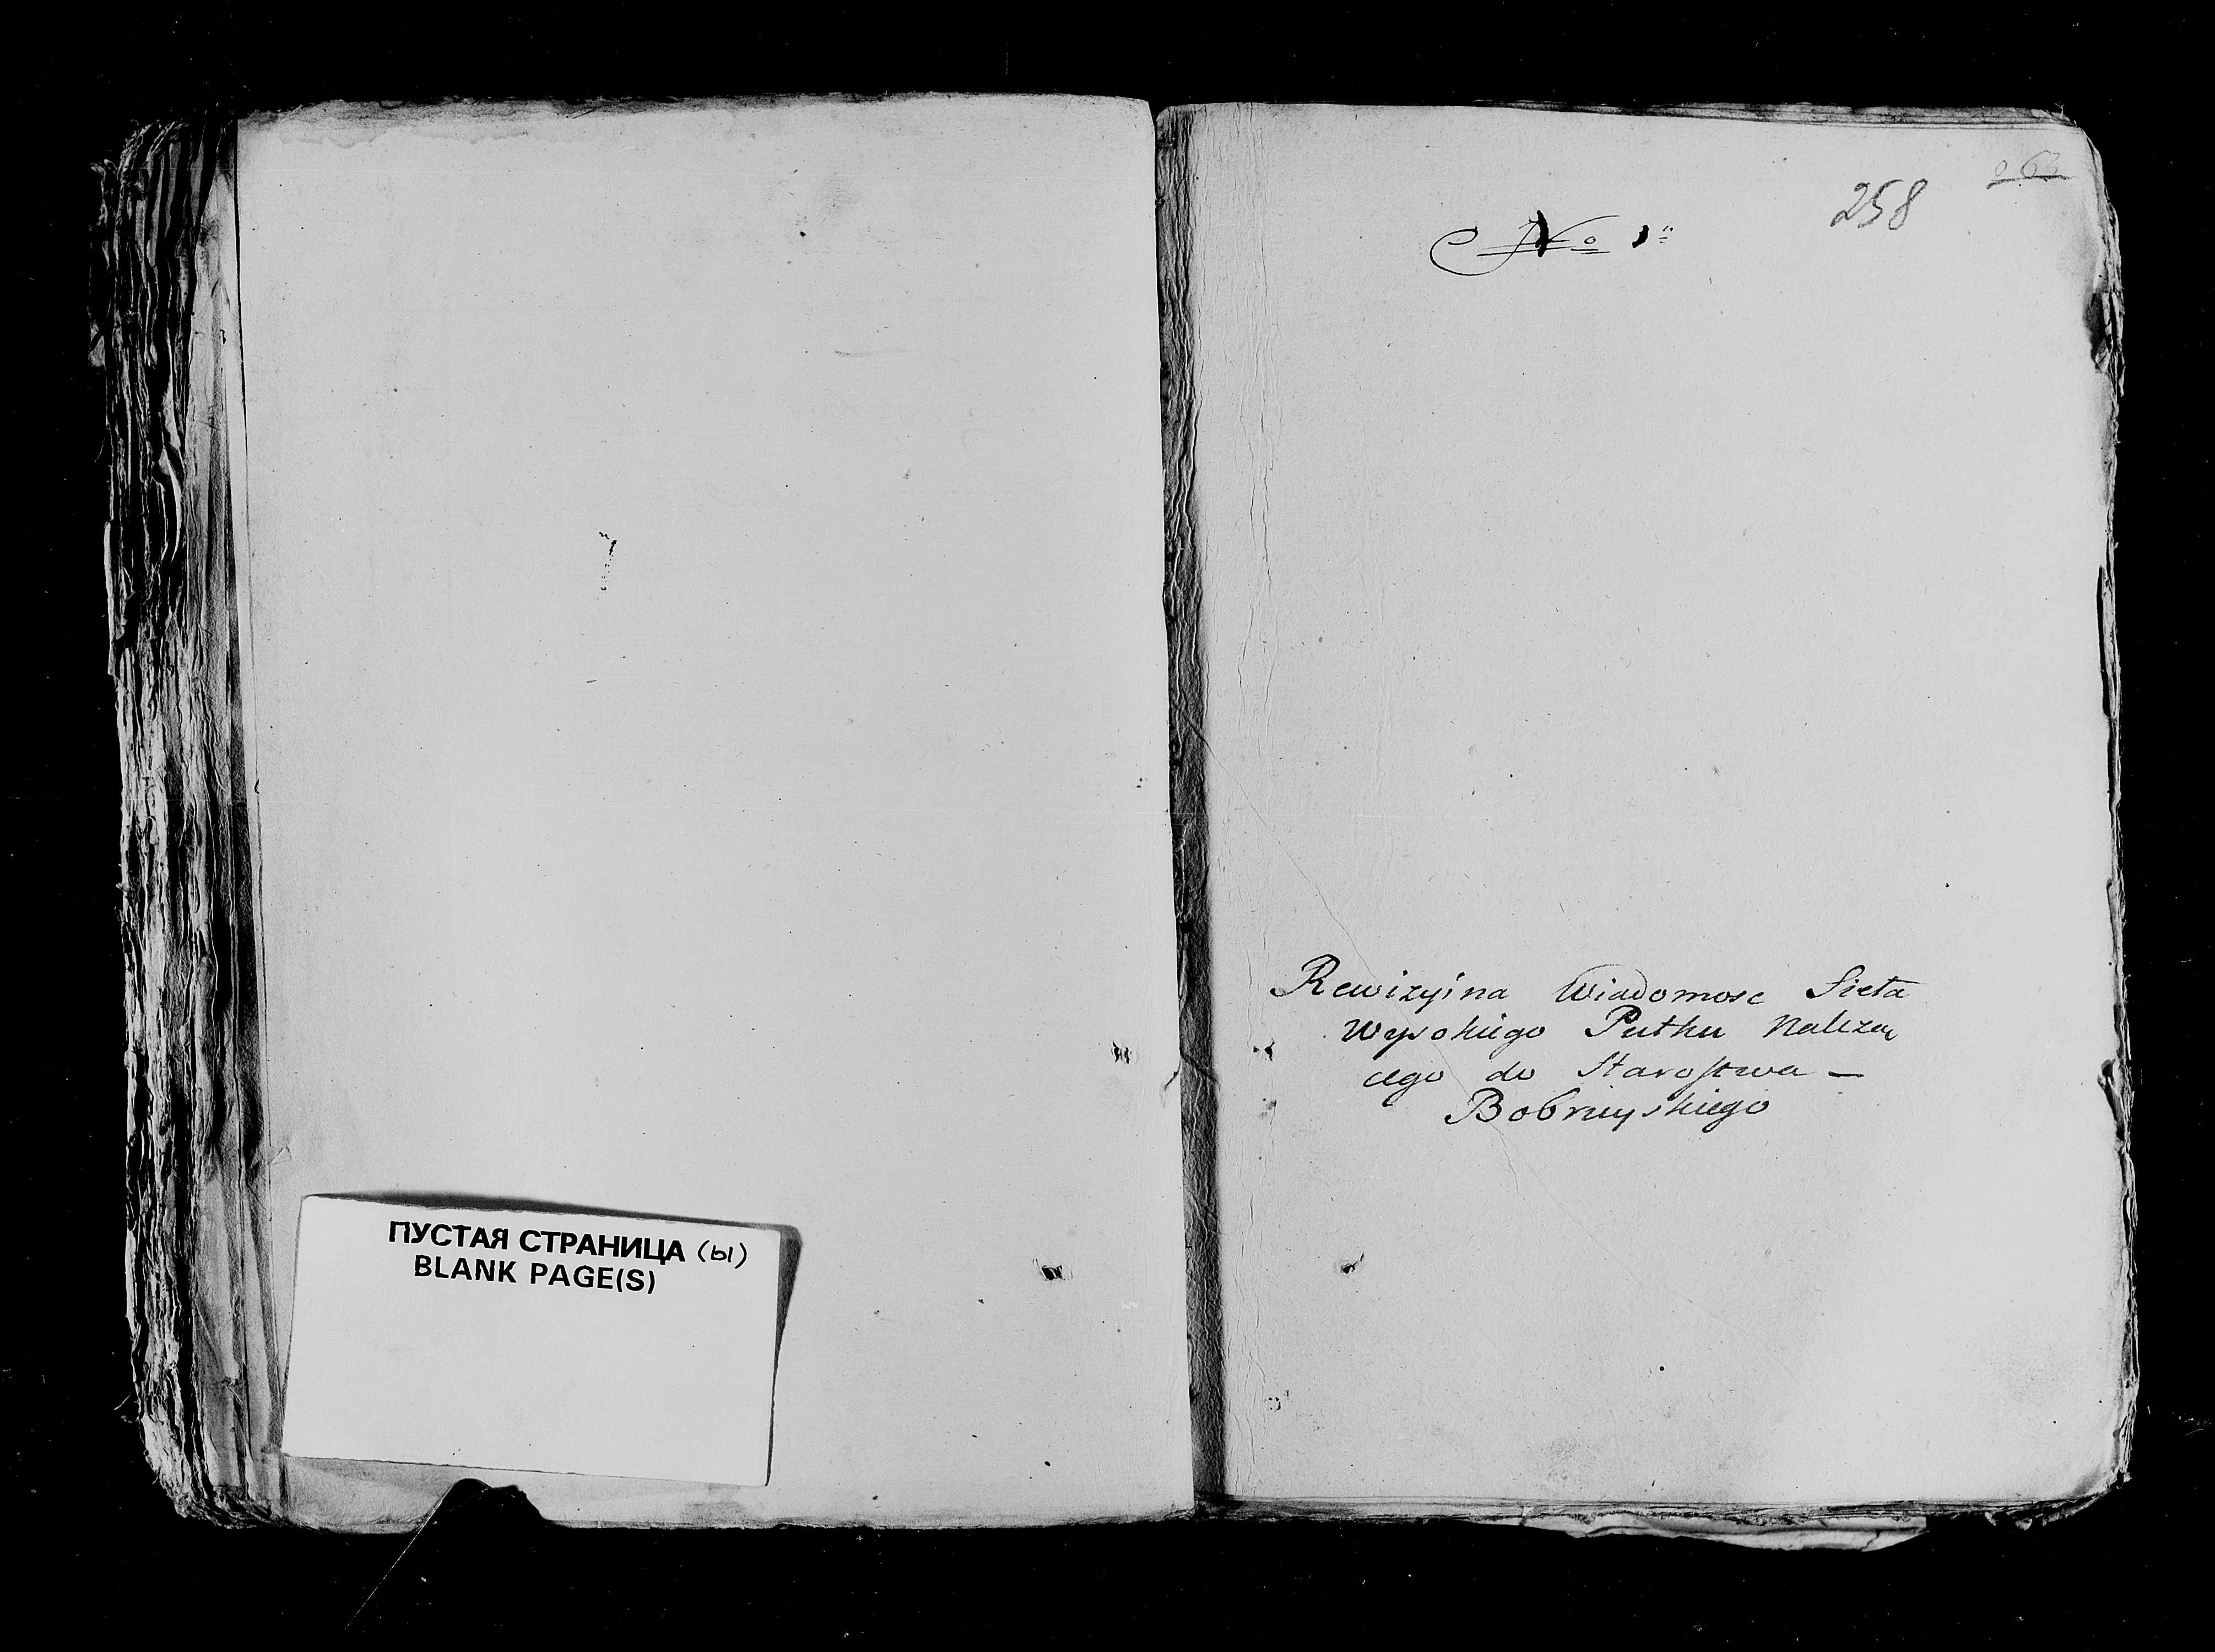 ПУСТАЯ СТРАНИЦА (ы)
BLANK PAGE(S)
258
No 1
Rewizyina Wiadomosc Sieła
Wysokiego Pułku Należą
cego do Starostwa —
Bobruyskiego